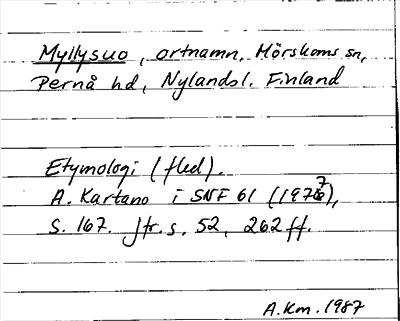 Myllysuo, ortnamn, Mörskoms sn,
Pernå hd, Nylandsl. Finland
Etymologi (fled).
A. Kartano i SNF 61 (1977),
s. 167. Jfr. s. 52, 262 ff.
A.Km. 1987